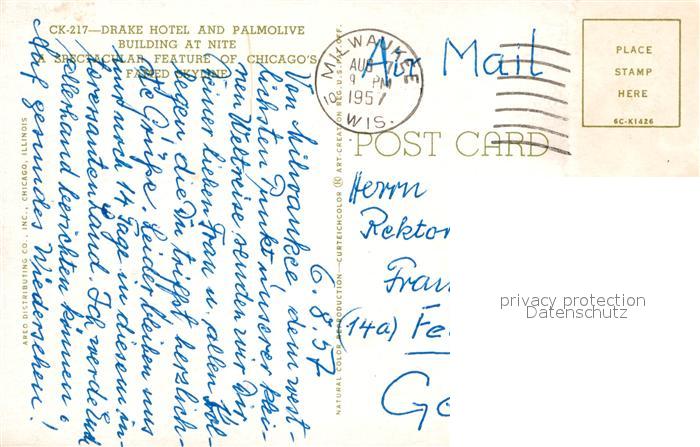 CK-217—DRAKE HOTEL AND PALMOLIVE
BUILDING AT NITE
A SPECTACULAR FEATURE OF CHICAGO'S
FAMED SKYLINE
6.8.57
Von Milwaukee, dem west-
lichsten Punkt unserer klei-
nen Weltreise, senden wir Dir,
Deiner lieben Frau u. allen Kol-
legen, die Du triffst herzlich-
ste Grüße. Leider bleiben uns
nur noch 14 Tage in diesem in-
teressanten Land. Ich werde Euch
allerhand berichten können.
Auf gesundes Wiedersehen!
AREO DISTRIBUTING CO., INC., CHICAGO, ILLINOIS
NATURAL COLOR REPRODUCTION—CURTEICHCOLOR ® ART-CREATION REG. U.S. PAT. OFF.
MILWAUKEE
AUG
9 PM
1957
WIS.
Air Mail
PLACE
STAMP
HERE
6C-K1426
POST CARD
Herrn
Rektor
Fran
(14a) Fe
Ge
privacy protection
Datenschutz